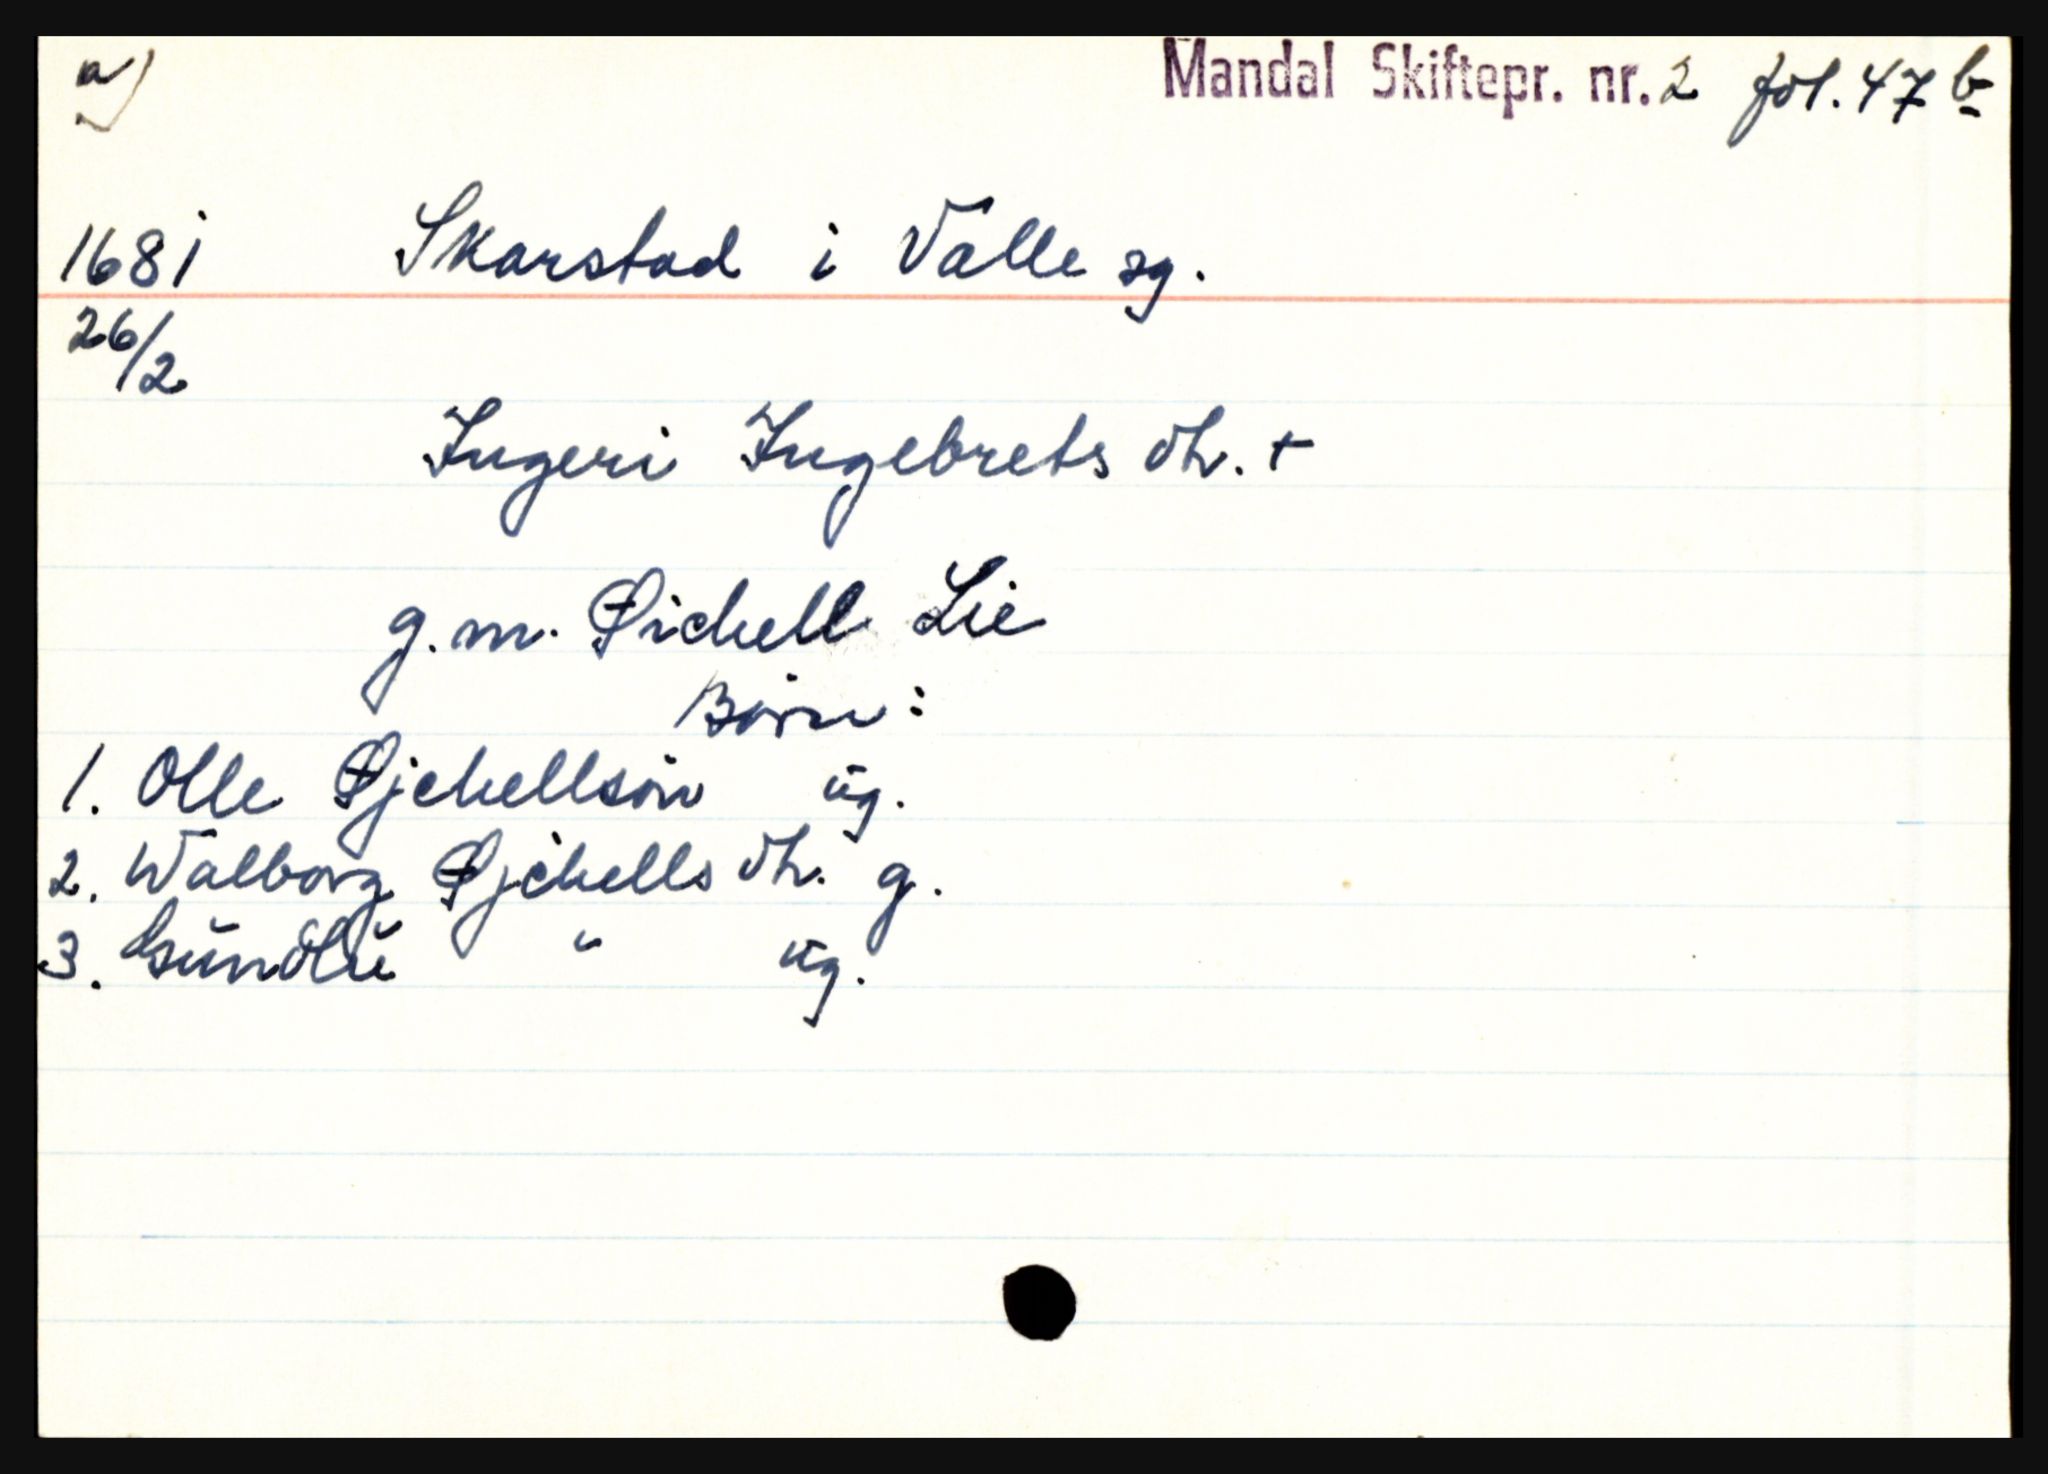 a)
Mandal Skiftepr. nr. 2 fol. 47 b
1681 Skarstad i Valle sg.
26/2
Ingeri Ingebrets dtr. +
g. m. Øichell Lie
Børn:
1. Olle Øjchellsøn ug.
2. Walborg Øjchells dtr. g.
3. " ug.